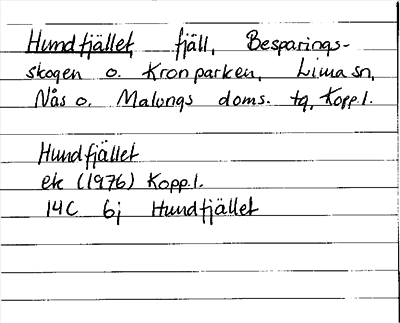 Hundfjället, fjäll, Besparings-
skogen o. Kronparken, Lima sn,
Nås o. Malungs doms. tg, Kopp.l.
Hundfjället
ek (1976) Kopp.l.
14C 6j Hundfjället